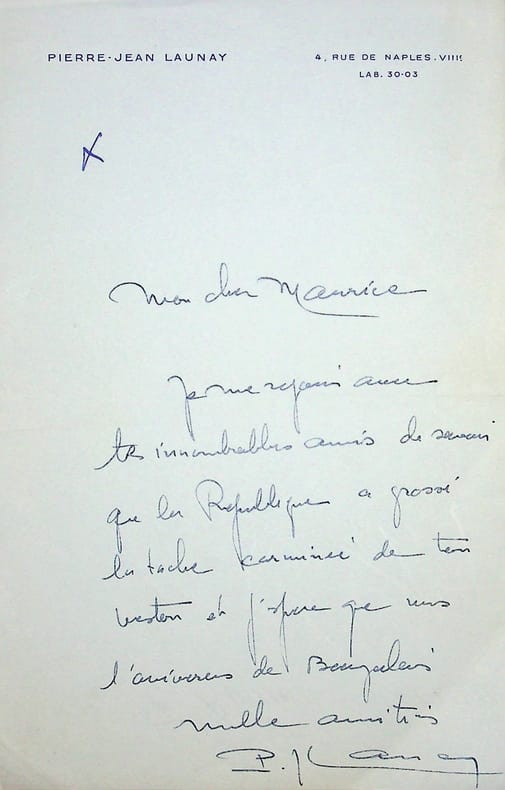 PIERRE-JEAN LAUNAY
4, RUE DE NAPLES. VIIIe
LAB. 30-03
Mon cher Maurice
Je me rejouis avec
tes innombrables amis de savoir
que la République a grossi
la tache carminée de ton
veston et j'espere que nous
l'arroserons de Beaujolais
mille amitiés
P. J Launay